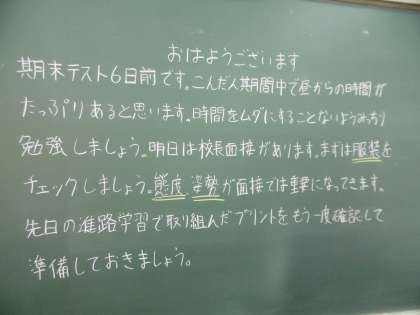 おはようございます
期末テスト6日前です。こんだん期間中で昼からの時間が
たっぷりあると思います。時間をムダにすることないようみっちり
勉強しましょう。明日は校長面接があります。まずは服装を
チェックしましょう。態度 姿勢が面接では重要になってきます。
先日の進路学習で取り組んだプリントをもう一度確認して
準備しておきましょう。